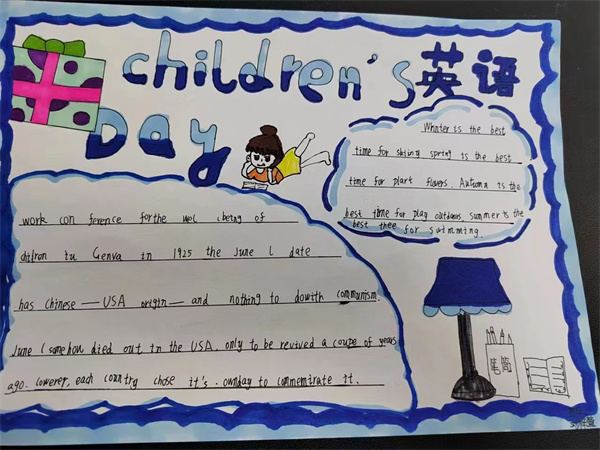 children's 英语
Day
Whnter is the best
time for skiing spring is the best
time for plart flowers. Autumn is the
best time for play outdoors. summer is the
best thee for swimming
work con ference forthe wel being of
chilron in Genva in 1925 the June 1 date
has Chinese — USA origin — and nothing to dowith communism.
June 1 some how died out in the USA. only to be revived a coupe of years
ago. lowerer, each country chose it's. ownday to commemirate it.